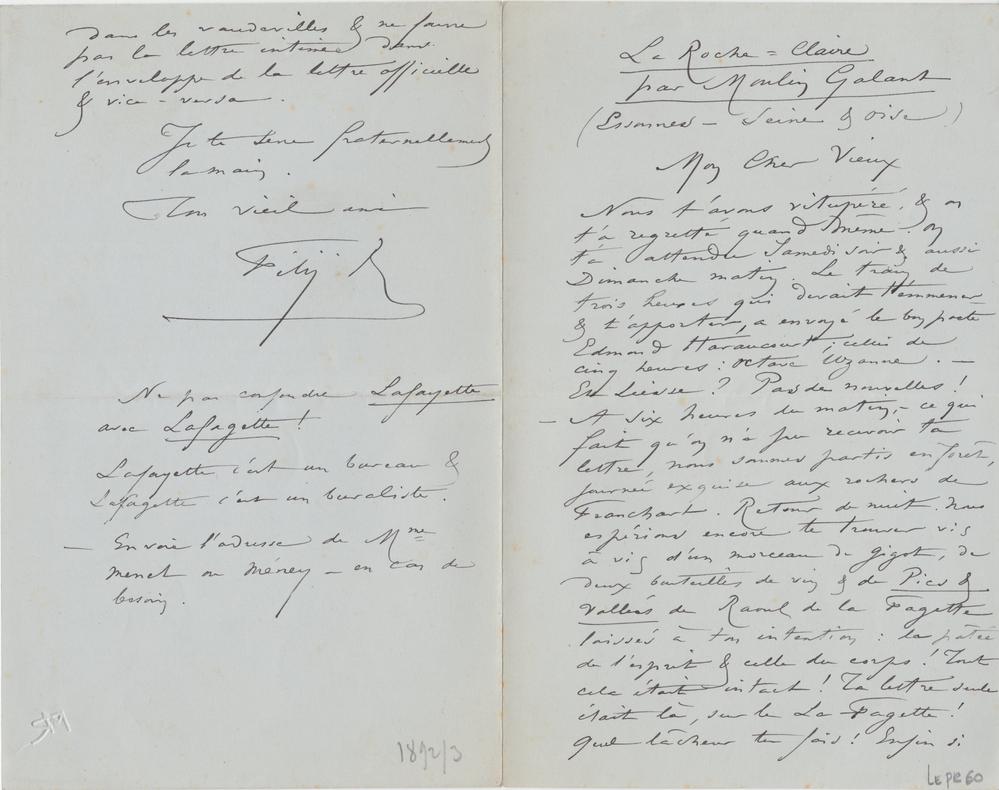 dans les vaudevilles & ne fourre
pas la lettre intime dans
l'enveloppe de la lettre officielle
& vice-versa.
Je te serre fraternellement
la main.
Ton vieil ami
Fély R
Ne pas confondre Lafayette
avec Lafagette !
Lafayette c'est un bureau &
Lafagette c'est un buraliste.
— Envoie l'adresse de Mme
menet ou Méney – en cas de
besoin.
1892/3
La Roche = Claire
par Moulin Galant
(Essonnes – Seine & Oise)
Mon Cher Vieux
Nous t'avons vitupéré, & on
t'a regretté quand même – on
t'a attendu Samedi soir & aussi
Dimanche matin. Le train de
trois heures qui devait t'emmener
& t'apporter, a envoyé le bon poète
Edmond Haraucourt ; celui de
cinq heures : Octave Uzanne. —
En Liesse ? Pas de nouvelles !
— A six heures du matin, – ce qui
fait qu'on n'a pu recevoir ta
lettre, nous sommes partis en forêt,
journée exquise aux rochers de
Franchart. Retour de nuit. Nous
espérions encore te trouver vis
à vis d'un morceau de gigot, de
deux bouteilles de vin & de Pics &
Vallées de Raoul de la Fagette
laissés à ton intention : la pâtée
de l'esprit & celle du corps ! Tout
cela était intact ! Ta lettre seule
était là, sur le La Fagette !
Quel lâcheur tu fais ! Enfin si
LEPR60